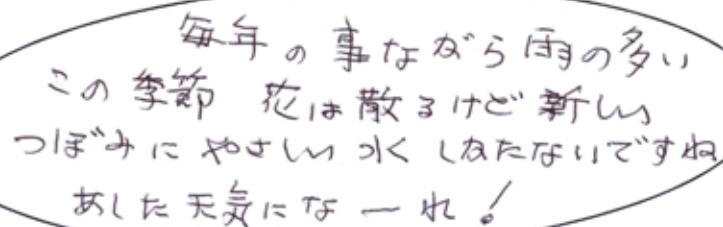 毎年の事ながら雨の多い
この季節 花は散るけど新しい
つぼみにやさしい水 しかたないですね
あした天気になーれ!